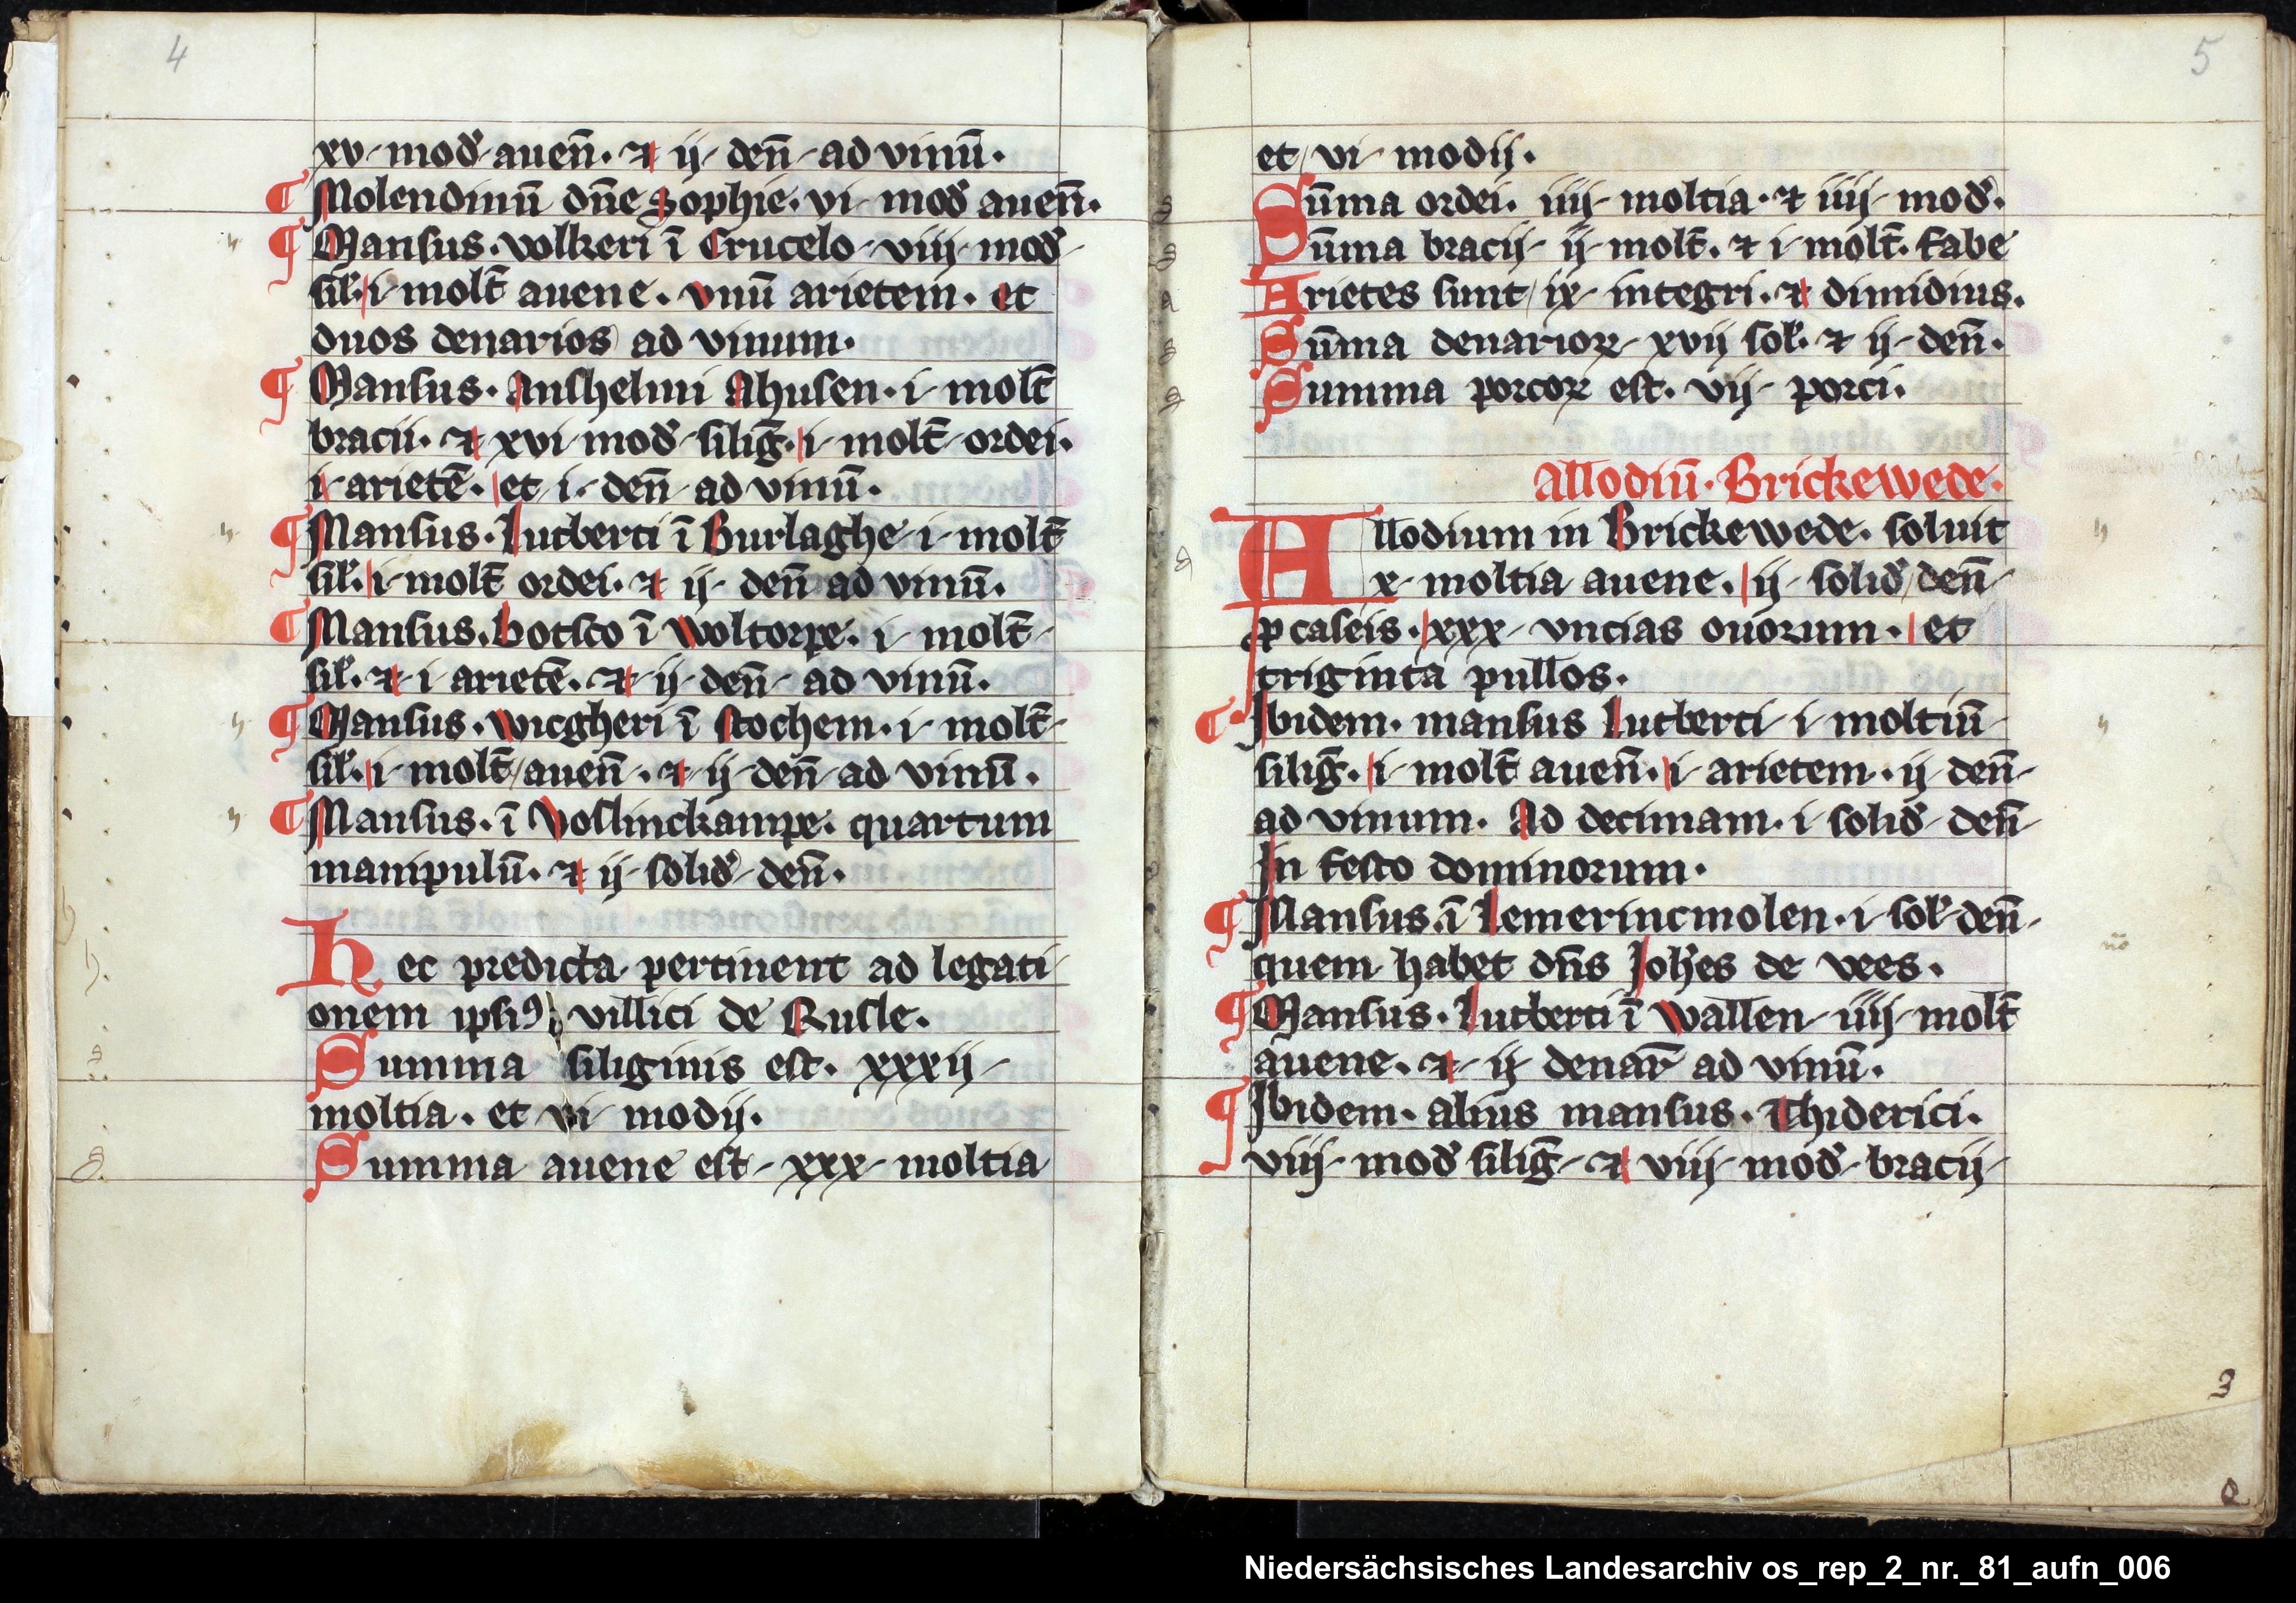 4
xv mod̛ auen̄. ⁊ ij den̄ ad vinū.
¶ Molendinū dn̄e sophie. vi mod̛ auen̄.
¶ Mansus. volkeri ī Crucelo viij mod̛
sil̛. i molt̄ auene. vnū arietem. et
duos denarios ad vinum.
¶ Mansus. Anshelmi Ahusen. i molt̄
bracii. ⁊ xvi mod̛ siliḡ. i molt̄ ordei.
i arietē. et i den̄ ad vinū.
¶ Mansus. Lutberti ī Burlaghe i molt̄
sil̛. i molt̄ ordei. ⁊ ij den̄ ad vinū.
¶ Mansus. botsco ī Woltorpe. i molt̄
sil̛. ⁊ i arietē. ⁊ ij den̄ ad vinū.
¶ Mansus. wicgheri ī stochem. i molt̄
sil̛. i molt̄ auen̄. ⁊ ij den̄ ad vinū.
¶ Mansus. ī Voslinckampe. quartum
manipulū. ⁊ ij solid̛ den̄.
Hec predicta pertinent ad legati
onem ipsiꝰ villici de Rusle.
Summa siliginis est. xxxij
moltia. et vi modij.
Summa auene est xxx moltia
5
et vi modij.
Sūma ordei. iiij moltia. ⁊ iiij mod̛.
Sūma bracij ij molt̄. ⁊ i molt̄. fabe
Arietes sunt ix integri. ⁊ dimidius.
Sūma denarioꝝ xvij sol̛. ⁊ ij den̄.
Summa porcoꝝ est. vij porci.
Allodiū. Brickewede.
Allodium in Brickewede. soluit
x moltia auene. ij solid̛ den̄
ꝓ caseis. xxx vncias ouorum. et
triginta pullos.
¶ Ibidem. mansus Lutberti i moltiū
siliḡ. i molt̄ auen̄. i arietem. ij den̄
ad vinum. Ad decimam. i solid̛ den̄
In festo dominorum.
¶ Mansus. ī Lemerincmolen. i sol̛ den̄
quem habet dn̄s Joh̄es de vees.
¶ Mansus. Lutberti ī Wallen iiij molt̄
auene. ⁊ ij denar̄ ad vinū.
¶ Ibidem. alius mansus. Thiderici.
viij mod̛ siliḡ ⁊ viij mod̛ bracij
3
Niedersächsisches Landesarchiv os_rep_2_nr._81_aufn_006